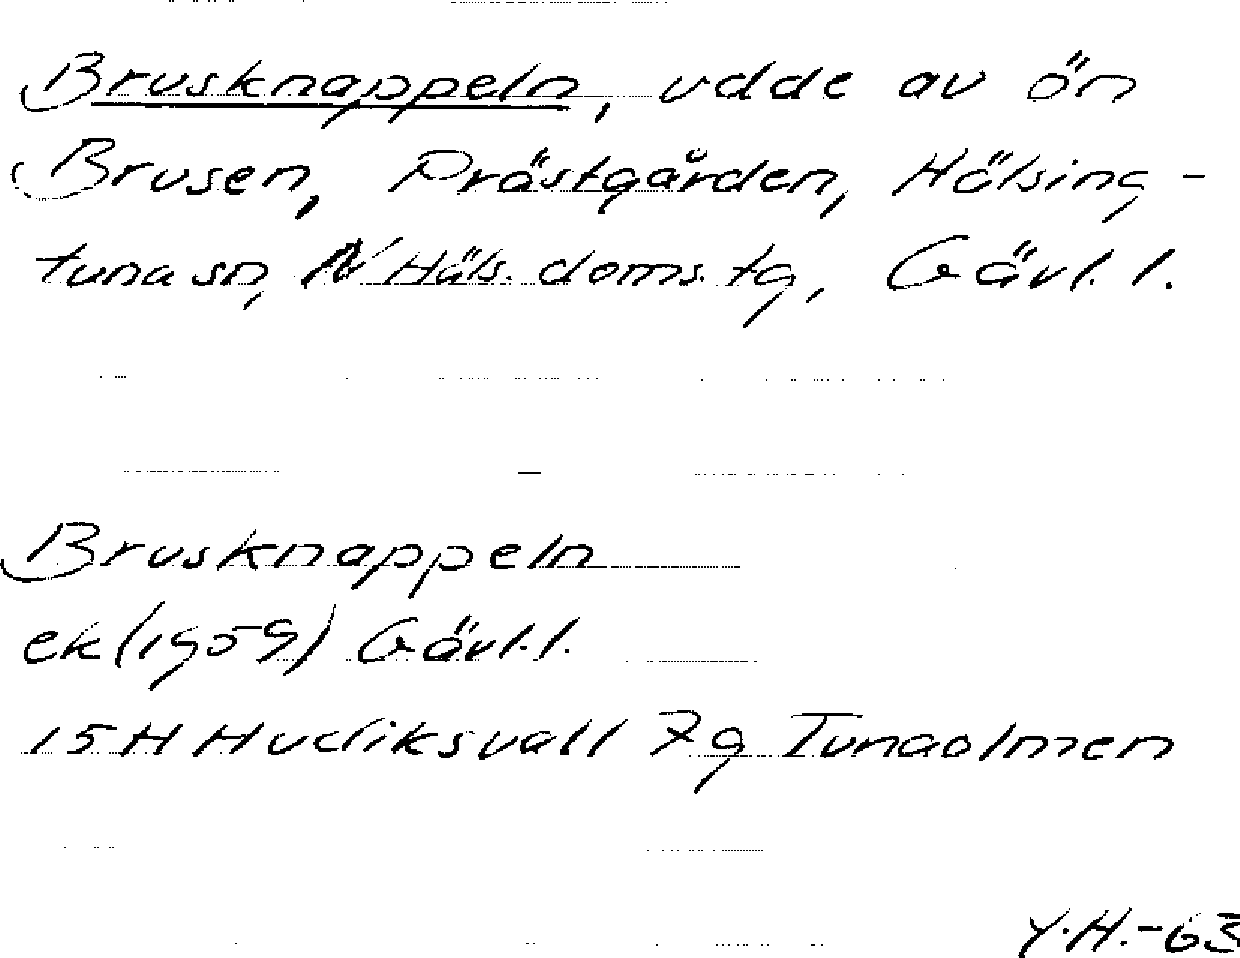 Brusknappeln, udde av ön
Brusen, Prästgården, Hälsing-
tuna sn, N Häls. doms. tg, Gävl. l.
Brusknappeln
ek (1959) Gävl. l.
15 H Hudiksvall 7g Tunaolmen
Y.H.-63